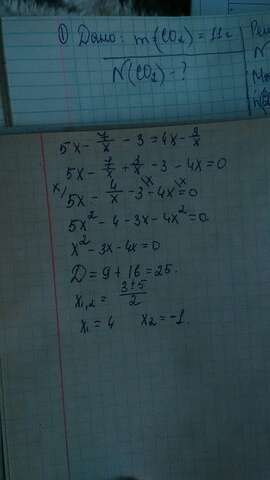 ① Дано: m(CO₂) = 11г
N(CO₂) - ?
5x - 7/x - 3 = 4x - 3/x
5x - 7/x + 3/x - 3 - 4x = 0
5x - 4/x - 3 - 4x = 0
5x² - 4 - 3x - 4x² = 0
x² - 3x - 4x = 0
D = 9 + 16 = 25.
x₁,₂ = (3±5)/2
x₁ = 4 x₂ = -1.